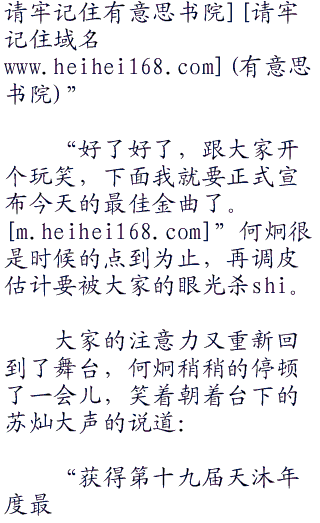 请牢记住有意思书院][请牢
记住域名
www.heihei168.com](有意思
书院)”
“好了好了，跟大家开
个玩笑，下面我就要正式宣
布今天的最佳金曲了。
[m.heihei168.com]”何炯很
是时候的点到为止，再调皮
估计要被大家的眼光杀shi。
大家的注意力又重新回
到了舞台，何炯稍稍的停顿
了一会儿，笑着朝着台下的
苏灿大声的说道：
“获得第十九届天沐年
度最